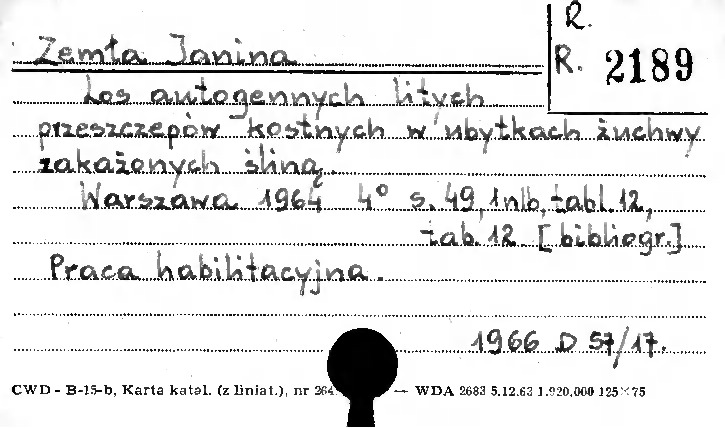 R.
Zemła Janina
R. 2189
Los autogennych litych
przeszczepów kostnych w ubytkach żuchwy
zakażonych śliną.
Warszawa 1964 4° s. 49, 1 nlb, tabl. 12,
tab. 12 [bibliogr.]
Praca habilitacyjna.
1966 D 57/17.
CWD - B-15-b, Karta katal. (z liniat.), nr 264 — WDA 2683 5.12.63 1.920,000 125×75